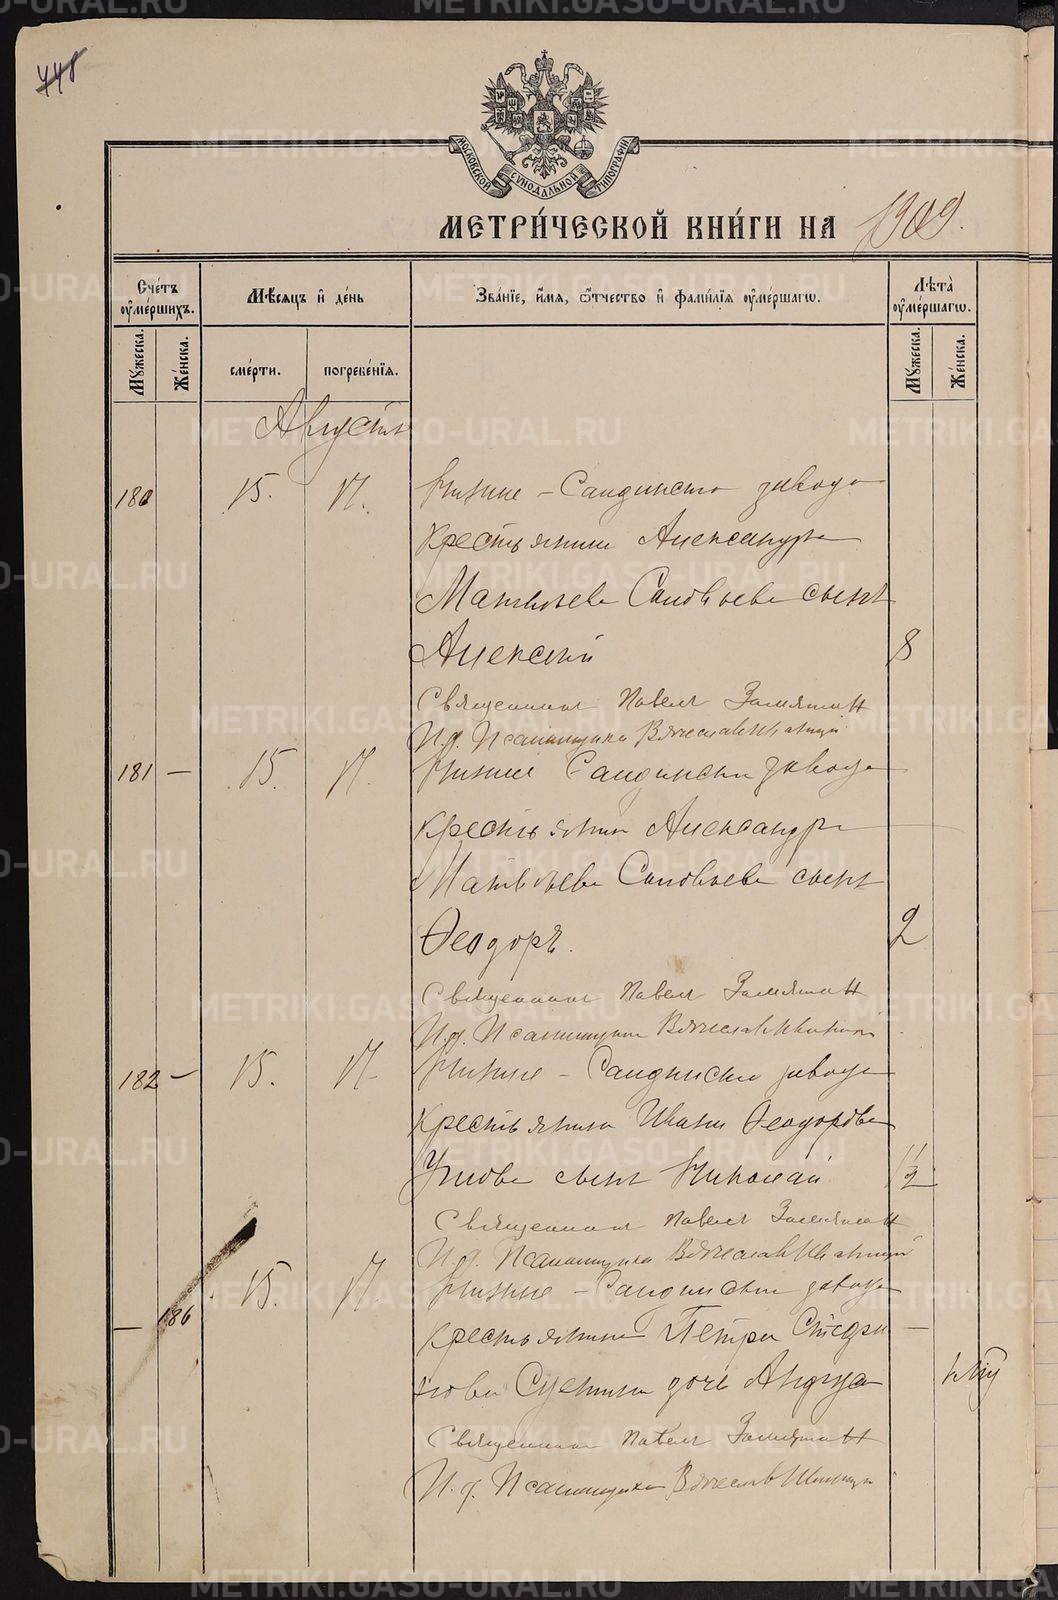 448
МОСКОВСКОЙ СУНОДАЛЬНОЙ ТИПОГРАФІИ
МЕТРИ́ЧЕСКОЙ КНИ́ГИ НА 1909.
Сче́тъ оу҆ме́ршихъ.
Мѣ́сяцъ и҆ де́нь
Зва́нїе, и҆́мя, ѻ҆́тчество и҆ фами́лїя оу҆ме́ршагѡ.
Лѣта̀ оу҆ме́ршагѡ.
Му́жеска.
Же́нска.
сме́рти.
погребе́нїя.
Му́жеска.
Же́нска.
Августъ
180 15. 17. Нижне-Салдинскаго завода
крестьянина Александра
Матвѣева Соловьева сынъ
Алексѣй 8
Священникъ Павелъ Замятин
И.д. Псаломщика Вячеслав
181 — 15. 17. Нижне Салдинскаго завода
крестьянина Александра
Матвѣева Соловьева сынъ
Ѳеодоръ. 2
Священникъ Павелъ Замятин
И.д. Псаломщика Вячеслав
182 — 15. 17. Нижне-Салдинскаго завода
крестьянина Ивана Ѳеодорова
сынъ Николай 1 1/2
Священникъ Павелъ Замятин
И.д. Псаломщика Вячеслав
— 186 15. 17. Нижне-Салдинскаго завода
крестьянина Петра —
дочь
Священникъ Павелъ Замятин
И.д. Псаломщика Вячеслав
METRIKI.GASO-URAL.RU